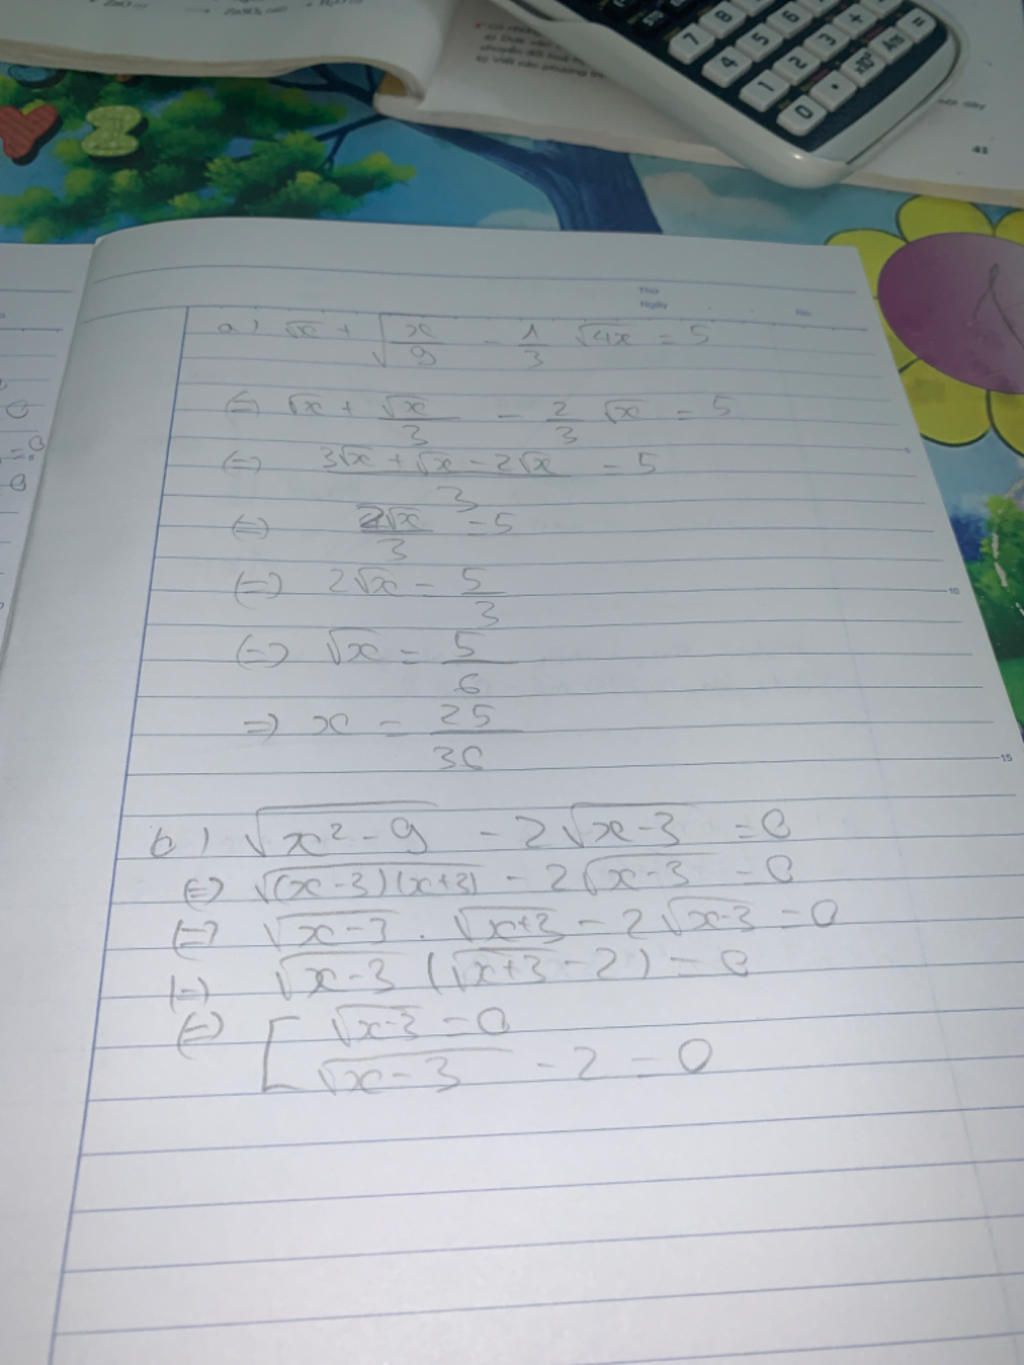 ZnSO₄
41
7 8
4 5 6 +
1 2 3 =
0 . x10ˣ Ans
Thứ
Ngày
No.
a) √x + √(x/9) - 1/3 √4x = 5
(=) √x + √x/3 - 2/3 √x = 5
(=) (3√x + √x - 2√x)/3 = 5
(=) 2√x/3 = 5
(=) 2√x = 5/3
(=) √x = 5/6
=) x = 25/36
b) √(x² - 9) - 2√(x-3) = 0
(=) √((x-3)(x+3)) - 2√(x-3) = 0
(=) √(x-3) . √(x+3) - 2√(x-3) = 0
(=) √(x-3) (√(x+3) - 2) = 0
(=) [ √(x-3) = 0
√(x-3) - 2 = 0
5
10
15